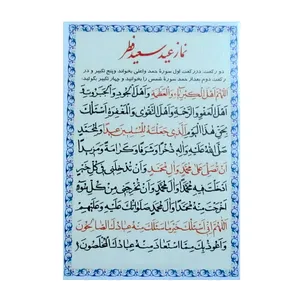 نماز عید سعید فطر
دو رکعت، دررکعت اول سورهٔ حمد واعلی بخواند وپنج تکبیر و در
رکعت دوم بعداز حمد سورهٔ شمس را بخوانید و چهار تکبیر بگوئید.
اَللّهُمَّ اَهْلَ الْكِبْرِياءِ وَالْعَظَمَةِ وَاَهْلَ الْجُودِ وَالْجَبَرُوتِ
وَاَهْلَ الْعَفْوِ وَالرَّحْمَةِ وَاَهْلَ التَّقْوى وَالْمَغْفِرَةِ اَسْئَلُكَ
بِحَقِّ هذَا الْيَوْمِ الَّذى جَعَلْتَهُ لِلْمُسْلِمينَ عيداً وَلِمُحَمَّدٍ
صَلَّى اللهُ عَلَيْهِ وَآلِهِ ذُخْراً وَشَرَفاً وَكَرامَةً وَمَزيداً
اَنْ تُصَلِّىَ عَلى مُحَمَّدٍ وَآلِ مُحَمَّدٍ وَاَنْ تُدْخِلَنى فى كُلِّ خَيْرٍ
اَدْخَلْتَ فيهِ مُحَمَّداً وَآلَ مُحَمَّدٍ وَاَنْ تُخْرِجَنى مِنْ كُلِّ سُوءٍ
اَخْرَجْتَ مِنْهُ مُحَمَّداً وَآلَ مُحَمَّدٍ صَلَواتُكَ عَلَيْهِ وَعَلَيْهِمْ
اَللّهُمَّ اِنّى اَسْئَلُكَ خَيْرَ ما سَئَلَكَ مِنْهُ عِبادُكَ الصّالِحُونَ
وَاَعُوذُ بِكَ مِمَّا اسْتَعاذَ مِنْهُ عِبادُكَ الْمُخْلَصُونَ